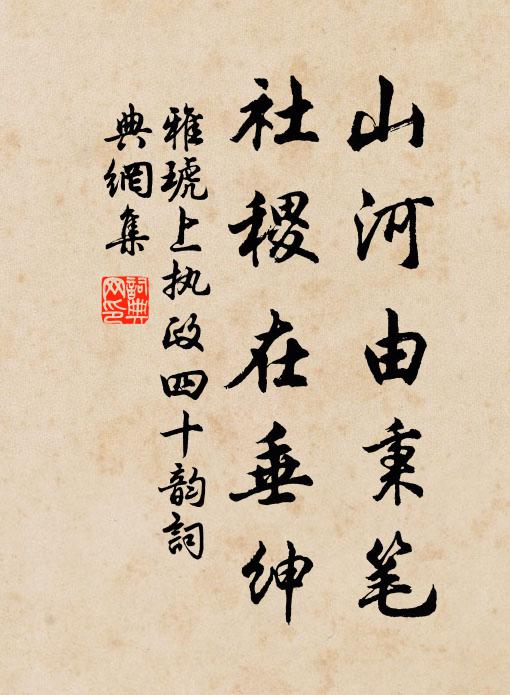 山河由秉笔
社稷在垂绅
雅琥上执政四十韵詞
典網集
詞典網印